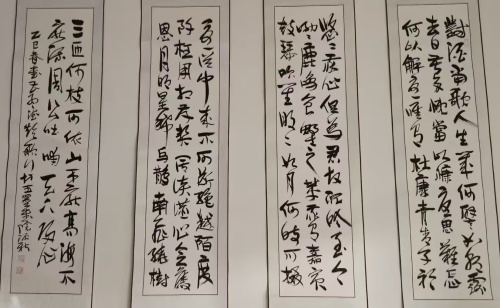 對酒當歌人生幾何譬如朝露
去日苦多慨當以慷憂思難忘
何以解憂唯有杜康青青子衿
悠悠我心但為君故沉吟至今
呦呦鹿鳴食野之苹我有嘉賓
鼓瑟吹笙明明如月何時可掇
憂從中來不可斷絕越陌度
阡枉用相存契闊談讌心念舊
恩月明星稀烏鵲南飛繞樹
三匝何枝可依山不厭高海不
厭深周公吐哺天下歸心
乙巳春書孟德短歌行